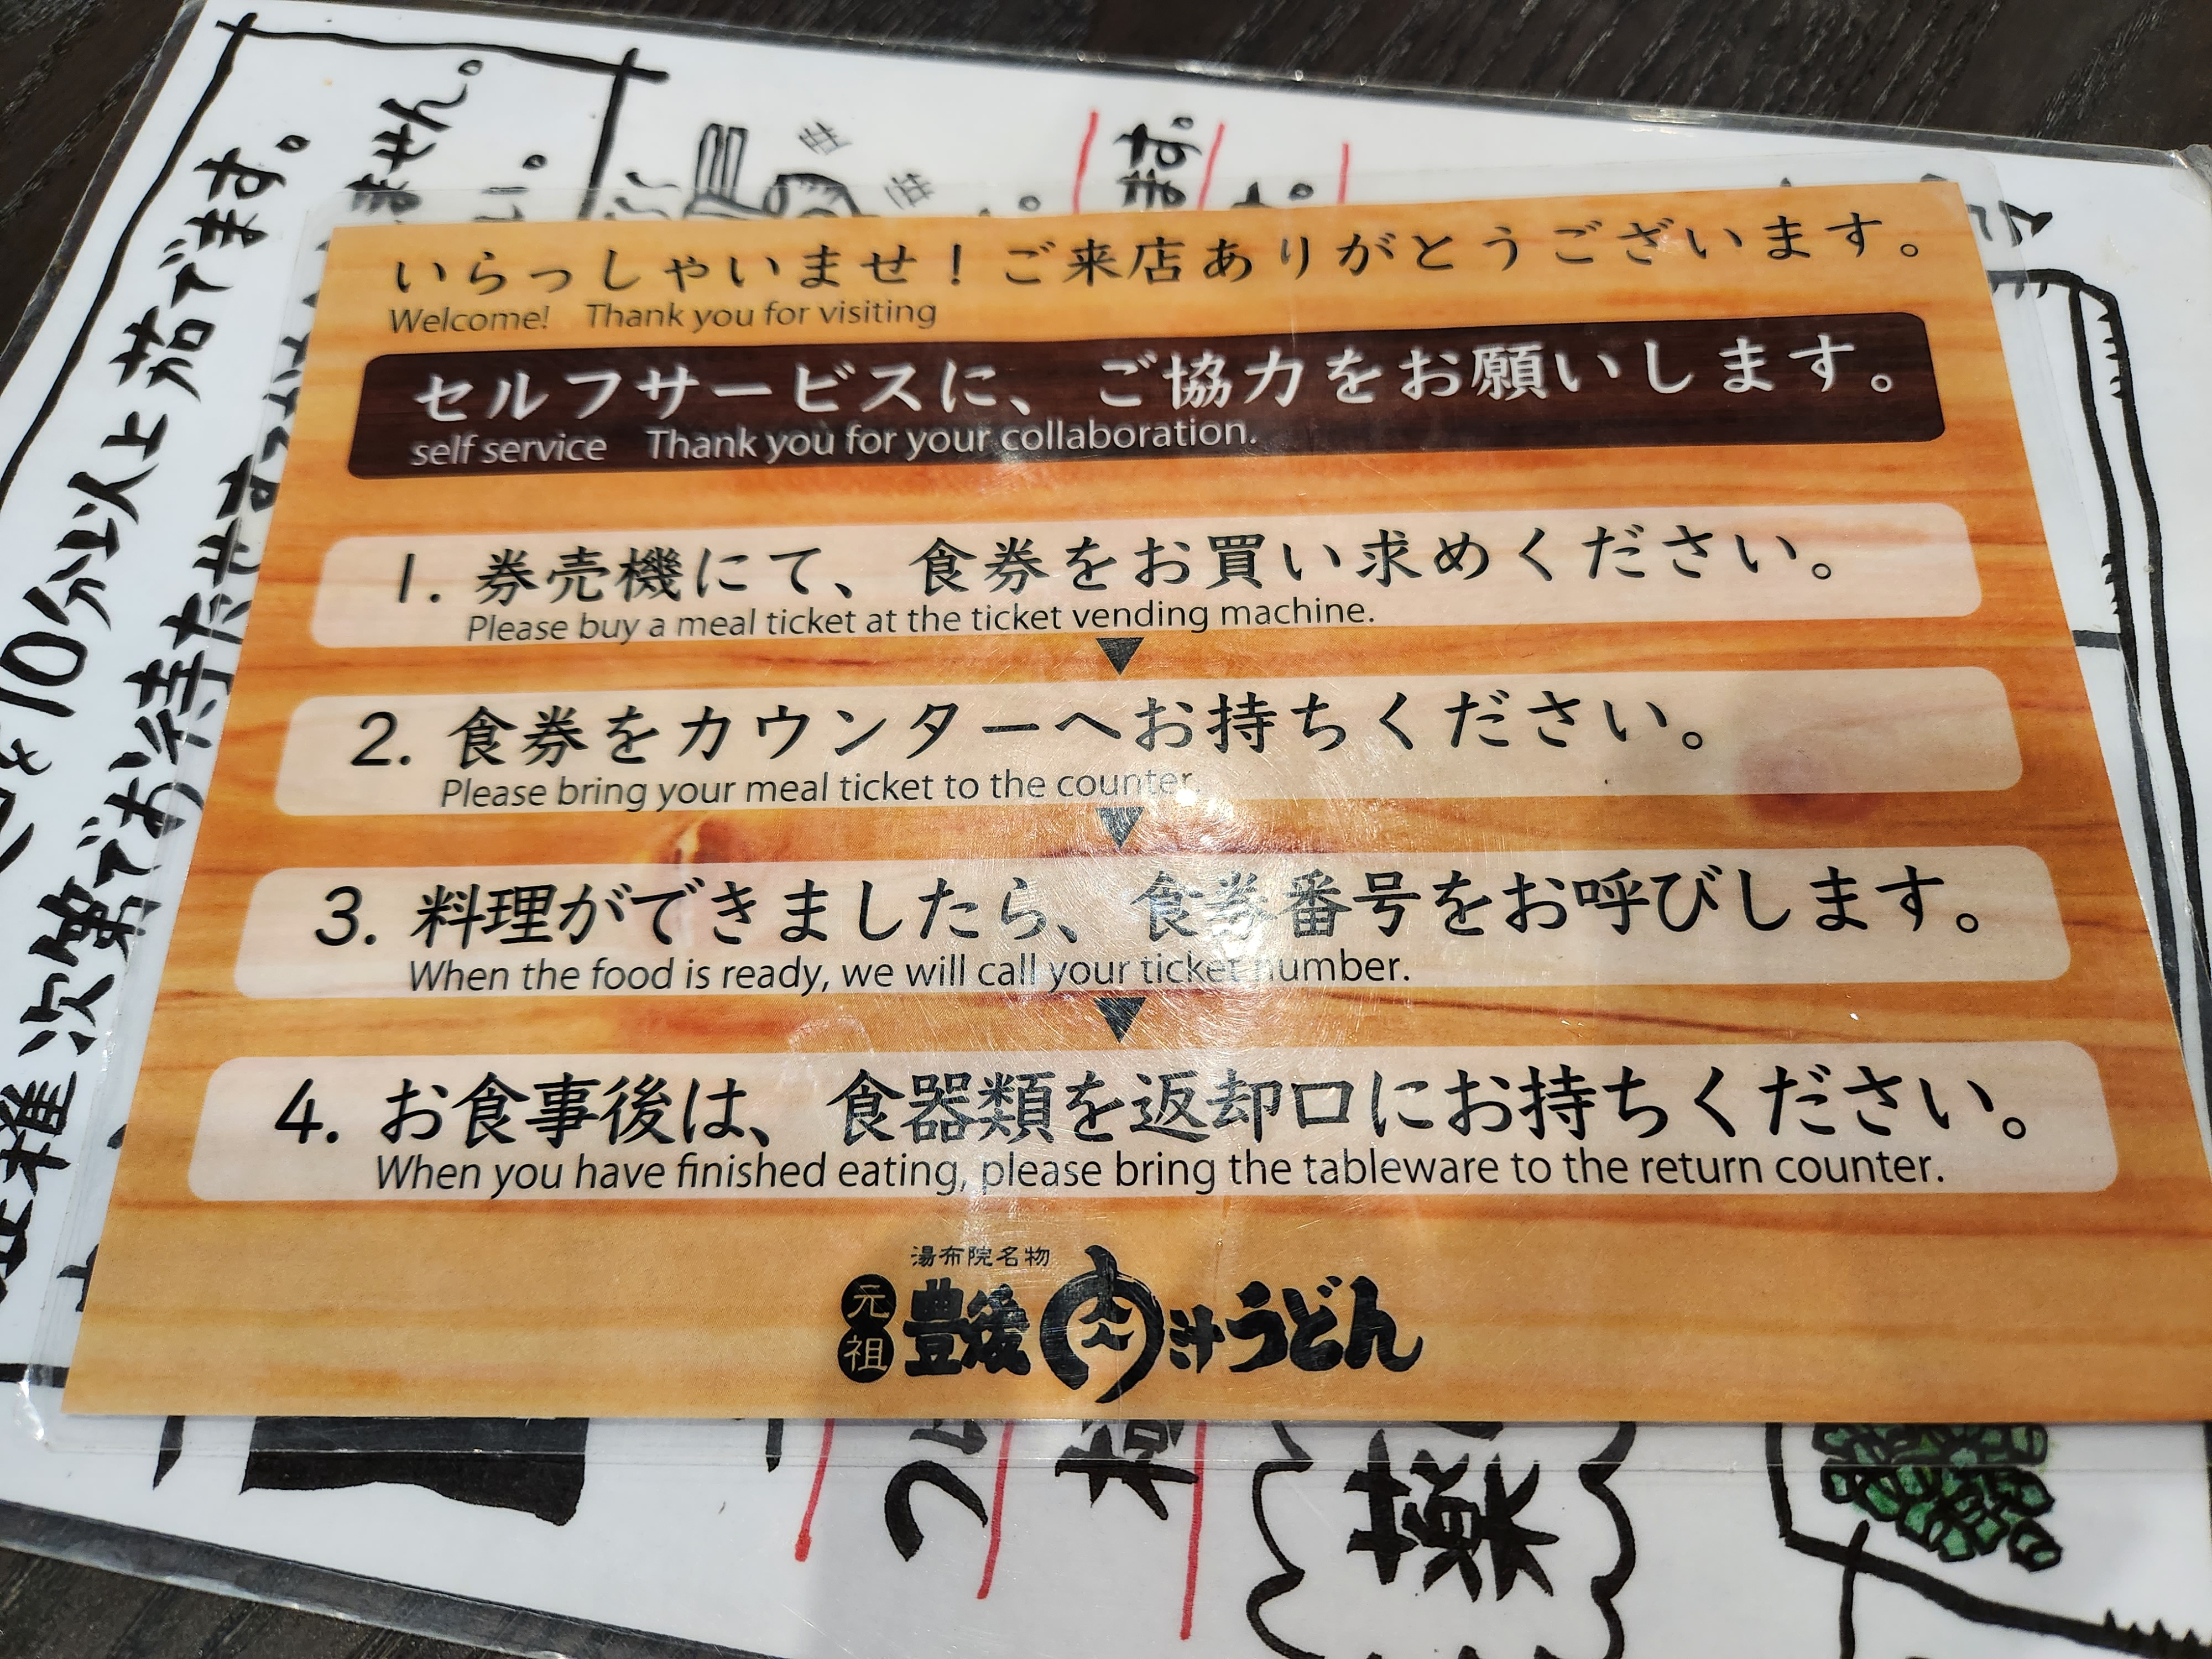 いらっしゃいませ！ご来店ありがとうございます。
Welcome! Thank you for visiting
セルフサービスに、ご協力をお願いします。
self service Thank you for your collaboration.
1. 券売機にて、食券をお買い求めください。
Please buy a meal ticket at the ticket vending machine.
2. 食券をカウンターへお持ちください。
Please bring your meal ticket to the counter.
3. 料理ができましたら、食券番号をお呼びします。
When the food is ready, we will call your ticket number.
4. お食事後は、食器類を返却口にお持ちください。
When you have finished eating, please bring the tableware to the return counter.
湯布院名物
元祖 豊後 肉汁うどん
ます。
ません。
10分以上茹でます。
次第でお待たせする